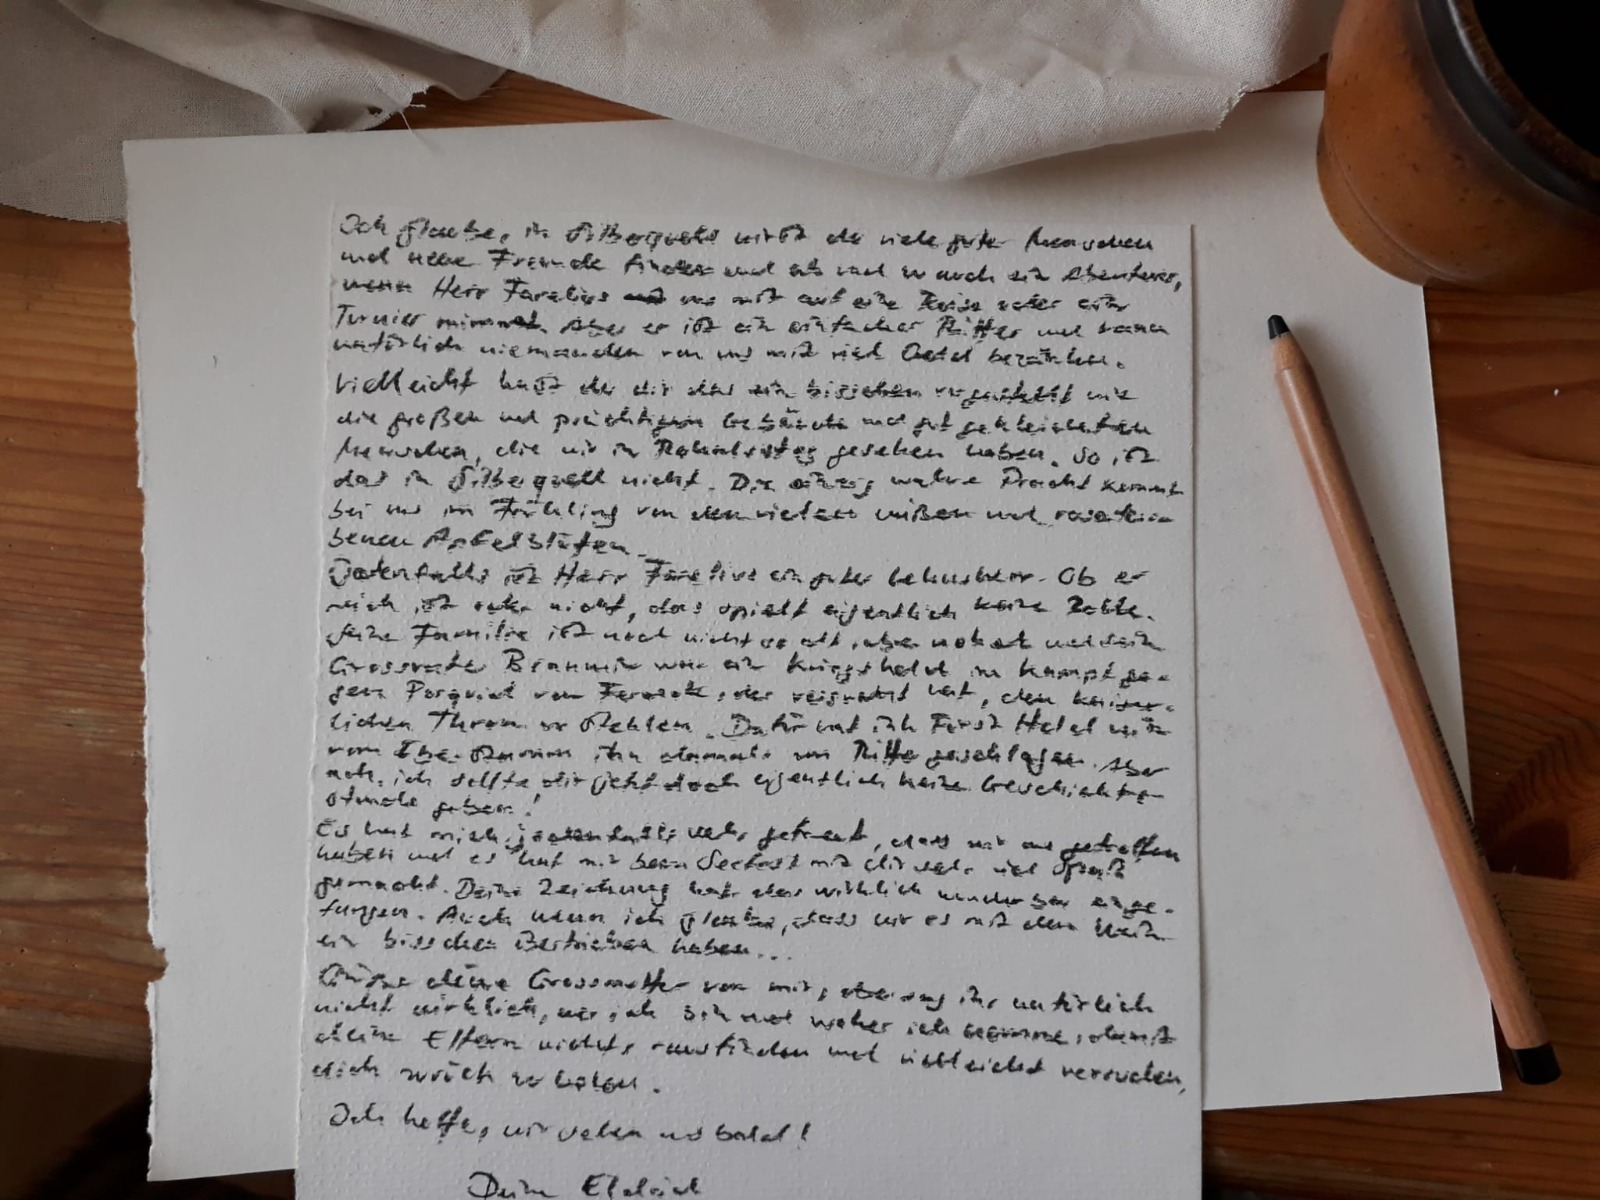 Ich glaube, in Silberquell wirst du viele gute Menschen
und neue Freunde finden und ab und zu auch ein Abenteuer,
wenn Herr Farelius uns mit auf eine Reise oder ein
Turnier nimmt. Aber er ist ein einfacher Ritter und kann
natürlich niemanden von uns mit viel Geld bezahlen.
Vielleicht hast du dir das ein bisschen vorgestellt wie
die großen und prächtigen Gebäude und gut gekleideten
Menschen, die wir in gesehen haben. So ist
das in Silberquell nicht. Die einzig wahre Pracht kommt
bei uns im Frühling von den vielen weißen und rosafar-
benen Apfelblüten.
Jedenfalls ist Herr Farelius ein guter Lehnsherr. Ob er
reich ist oder nicht, das spielt eigentlich keine Rolle.
Seine Familie ist noch nicht so alt, aber nobel und sein
Grossvater war ein Kriegsheld im Kampf ge-
gen von der versucht hat, den kaiser-
lichen Thron zu stehlen. Dafür hat ihn Fürst
vom ihn damals zum Ritter geschlagen. Aber
ach, ich sollte dir jetzt doch eigentlich keine Geschichts-
stunde geben!
Es hat mich jedenfalls sehr gefreut, dass wir uns getroffen
haben und es hat mir beim Seefest mit dir sehr viel Spaß
gemacht. Deine Zeichnung hat das wirklich wunderbar einge-
fangen. Auch wenn ich glaube, dass wir es mit dem Wein
ein bisschen übertrieben haben...
Grüsse deine Grossmutter von mir, aber sag ihr natürlich
nicht wirklich, wer ich bin und woher ich komme, damit
deine Eltern nichts rausfinden und vielleicht versuchen,
dich zurück zu holen.
Ich hoffe, wir sehen uns bald!
Deine